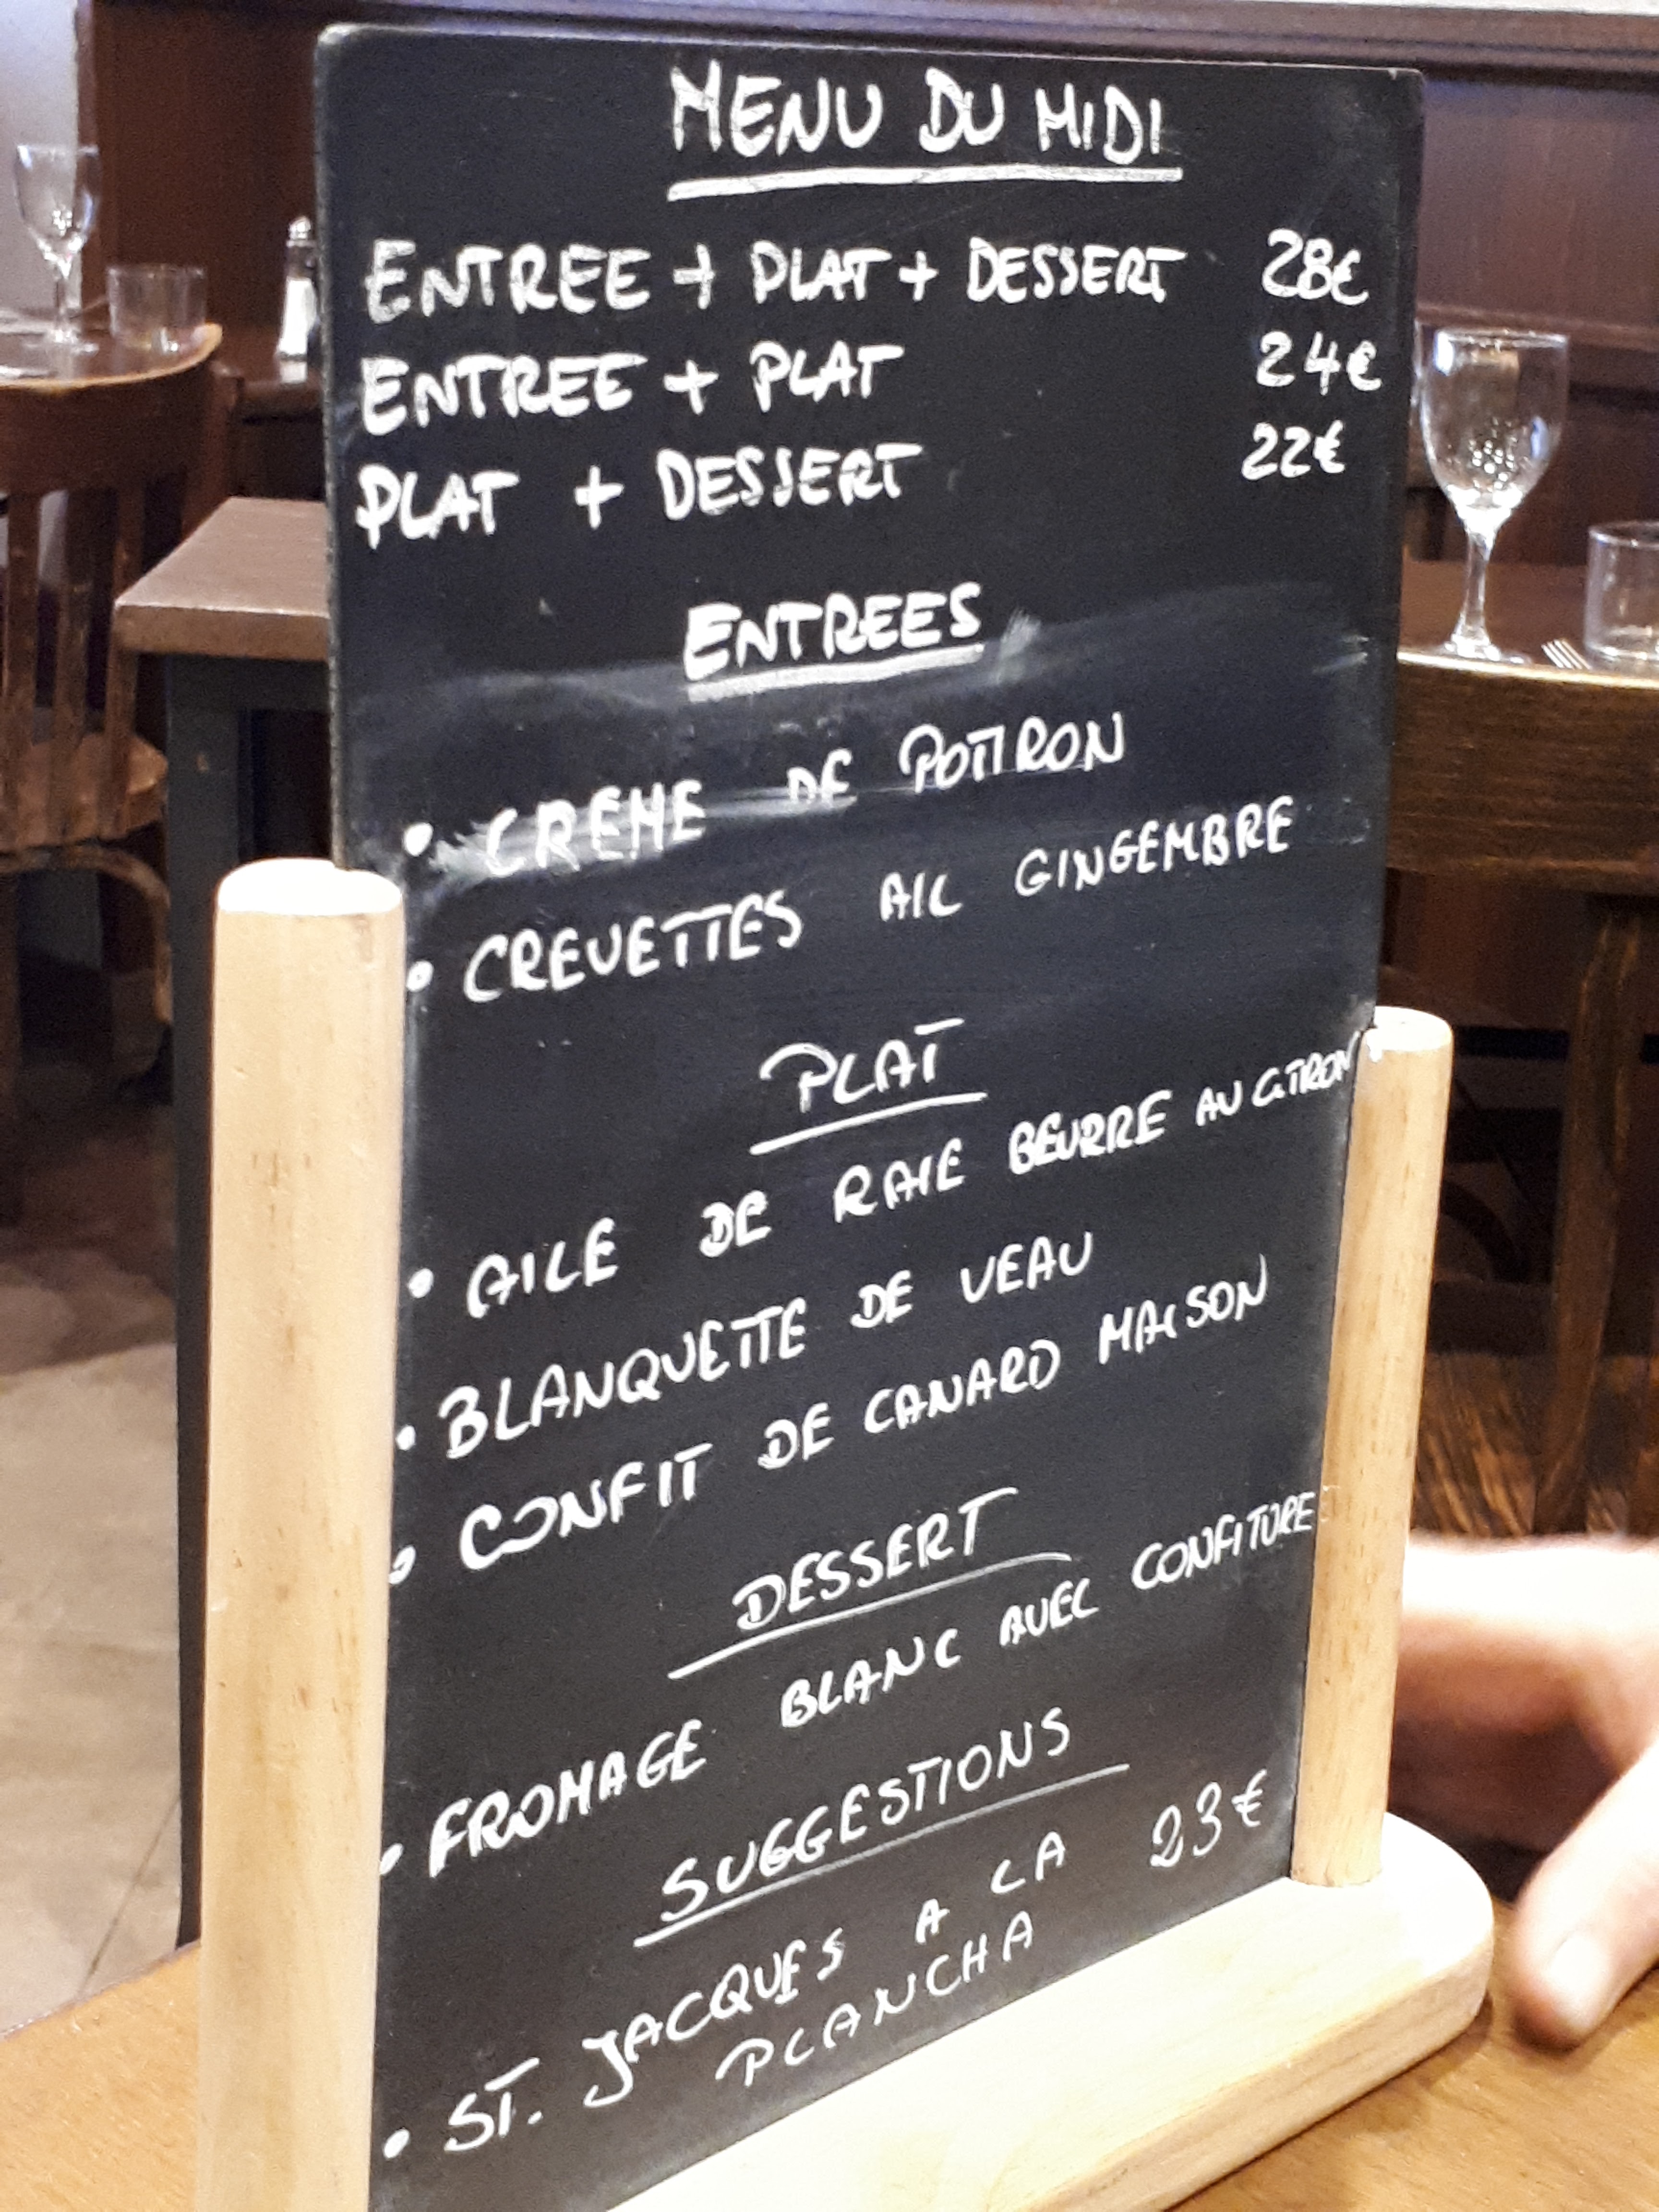 MENU DU MIDI
ENTREE + PLAT + DESSERT 28€
ENTREE + PLAT 24€
PLAT + DESSERT 22€
ENTREES
• CREME DE POTIRON
• CREVETTES AIL GINGEMBRE
PLAT
• AILE DE RAIE BEURRE AU CITRON
• BLANQUETTE DE VEAU
• CONFIT DE CANARD MAISON
DESSERT
• FROMAGE BLANC AVEC CONFITURE
SUGGESTIONS
• ST. JACQUES A LA 23€
PLANCHA